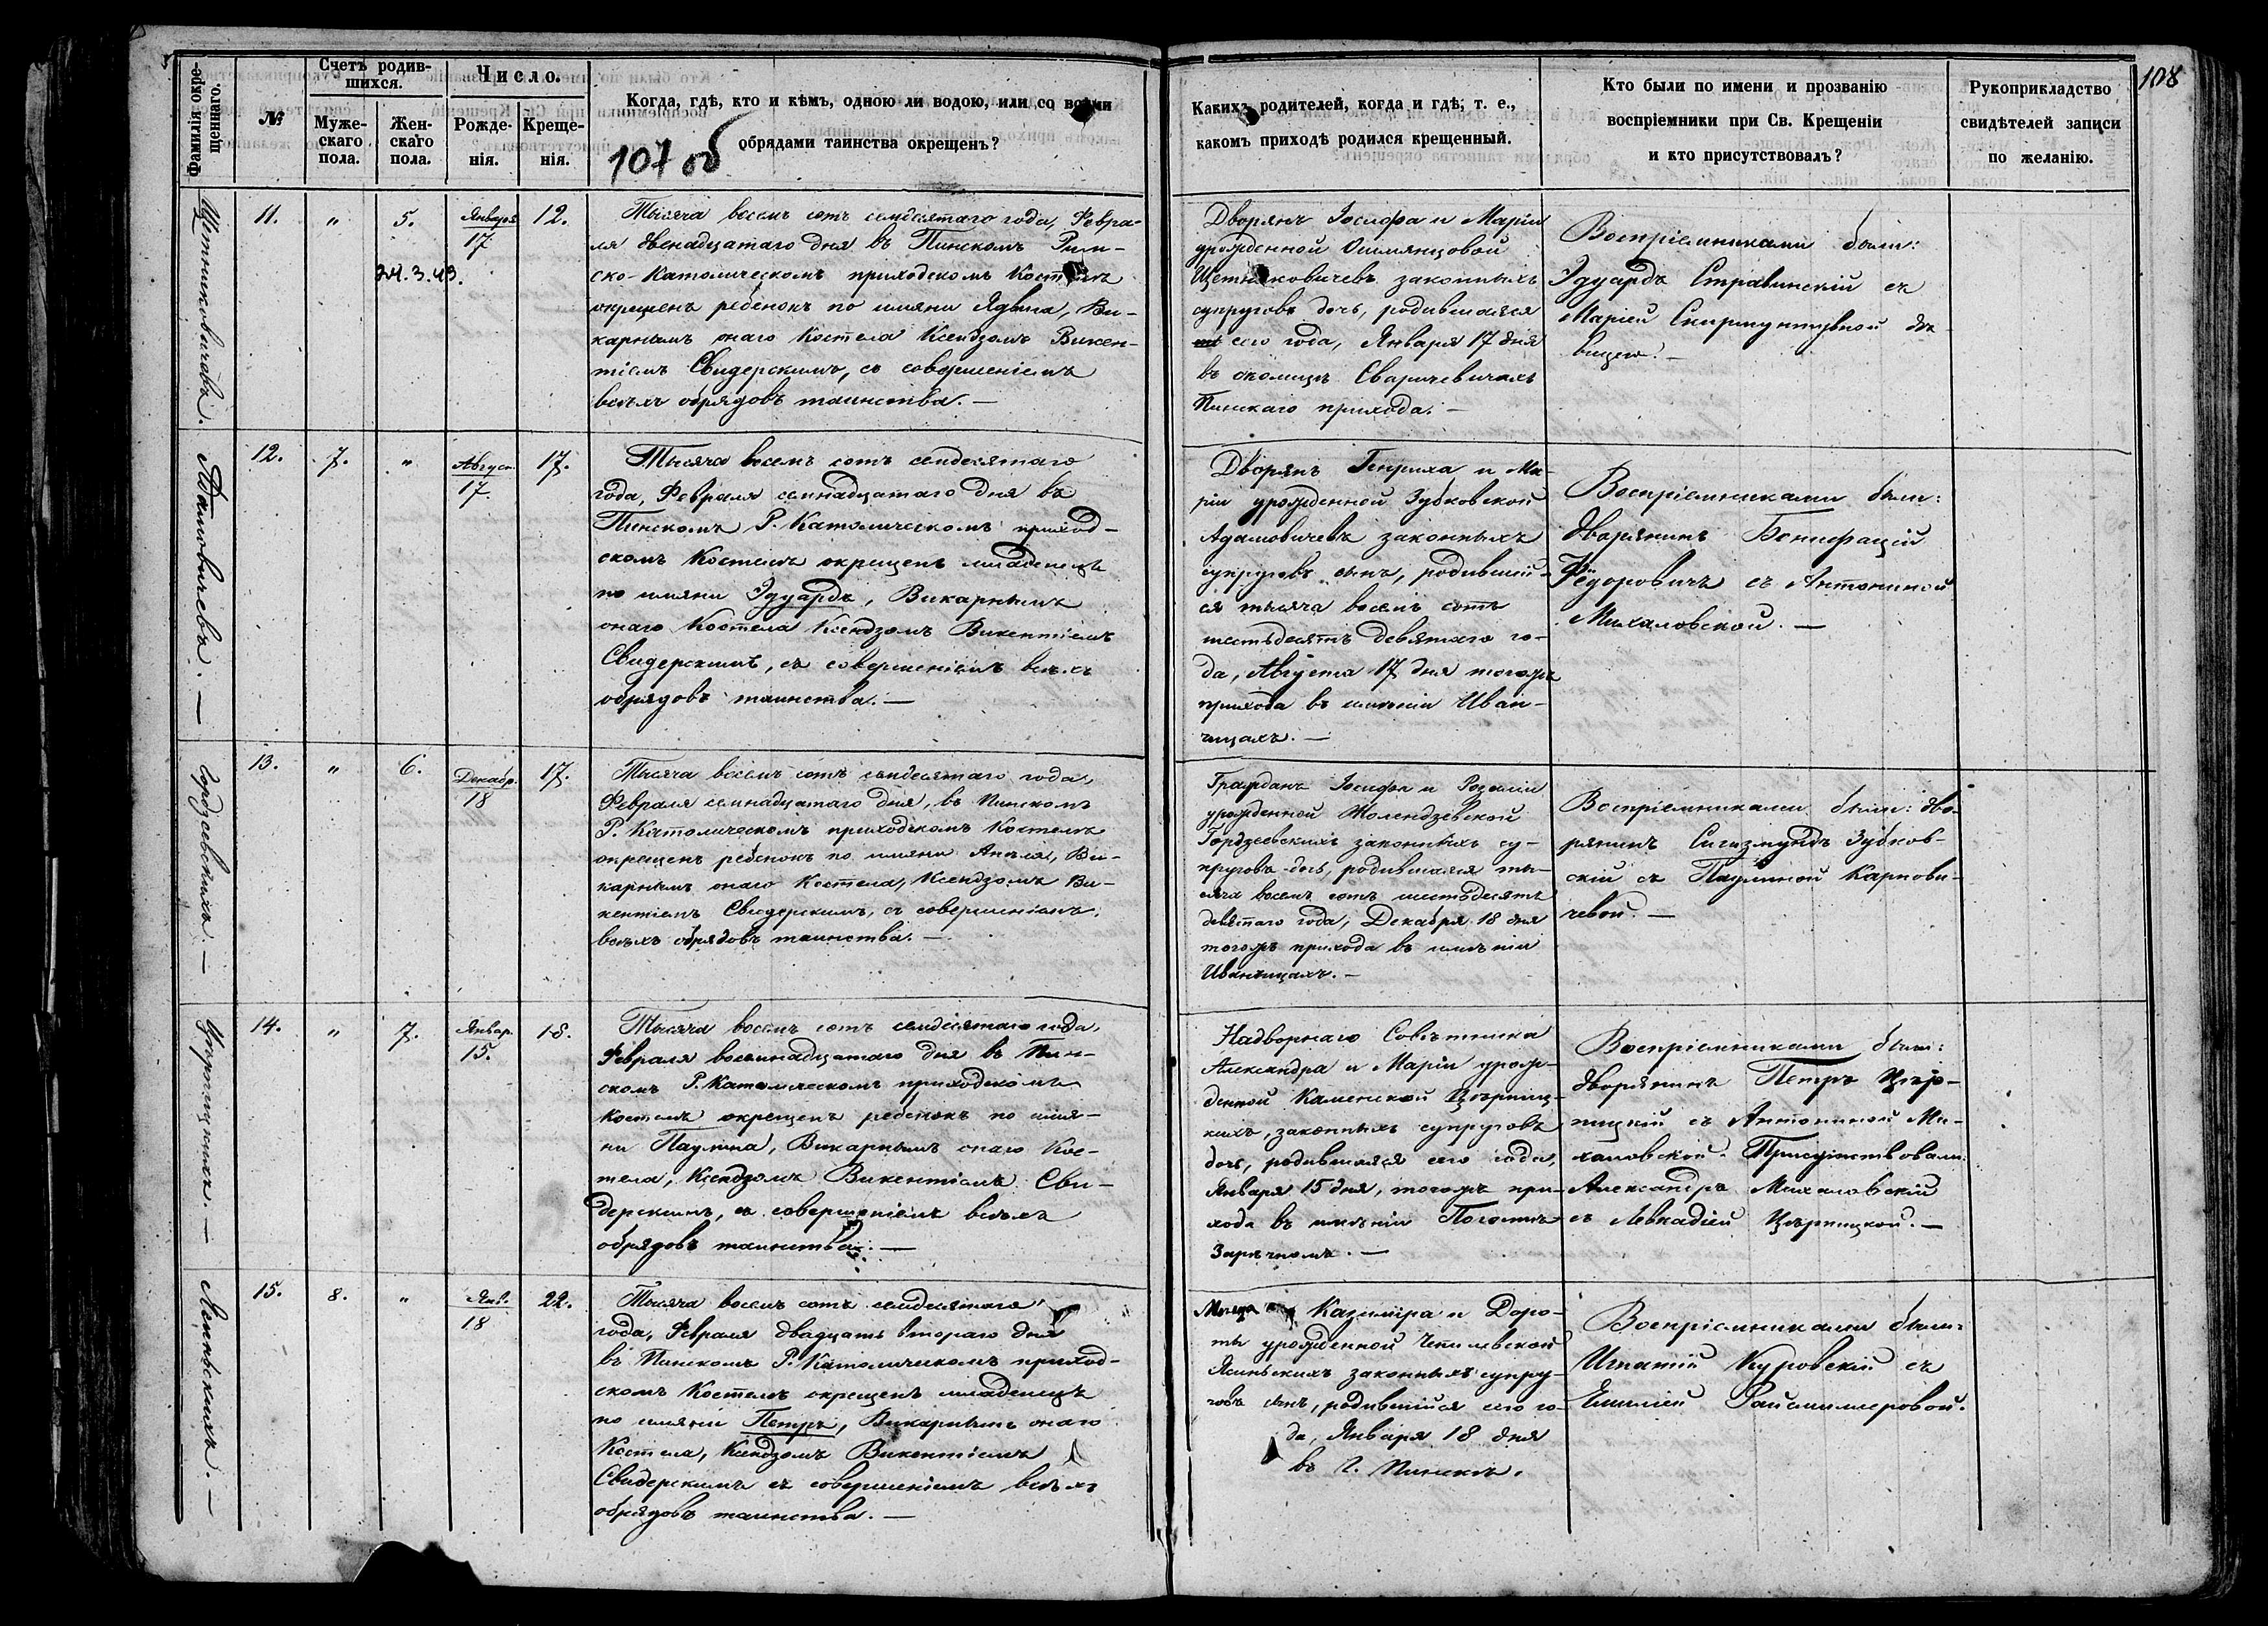 108
Фамилія окре-
щеннаго.
№
Счетъ родив-
шихся.
Муже-
скаго
пола.
Жен-
скаго
пола.
Число.
Рожде-
нія.
Креще-
нія.
Когда, гдѣ, кто и кѣмъ, одною ли водою, или со всѣми
обрядами таинства окрещенъ?
107 об
Какихъ родителей, когда и гдѣ, т. е.,
какомъ приходѣ родился крещенный.
Кто были по имени и прозванію
воспріемники при Св. Крещеніи
и кто присутствовалъ?
Рукоприкладство
свидѣтелей записи
по желанію.
Щетниковичевъ.
11.
"
5.
24.3.43.
Января
17.
12.
Тысяча восемь сотъ семдесятаго года, Февра-
ля двенадцатаго дня въ Пинскомъ Рим-
ско-Католическомъ приходскомъ Костелѣ
окрещенъ ребенокъ по имяни Ядвига, Ви-
карнымъ онаго Костела Ксендзомъ Викен-
тіемъ Свидерскимъ, съ совершеніемъ
всѣхъ обрядовъ таинства. —
Дворянъ Іосифа и Маріи
урожденной Ошмянцовой
Щетниковичевъ законныхъ
супруговъ дочь, родившаяся
сего года, Января 17 дня
въ околицѣ Сваричевичахъ
Пинскаго прихода. —
Воспріемниками были:
Эдуардъ Стравинскій съ
Маріей Скирмунтувной дѣ-
вицею. —
Адамовичевъ. —
12.
7.
"
Август.
17.
17.
Тысяча восемь сотъ семдесятаго
года, Февраля семнадцатаго дня въ
Пинскомъ Р. Католическомъ приход-
скомъ Костелѣ окрещенъ младенецъ
по имяни Эдуардъ, Викарнымъ
онаго Костела Ксендзомъ Викентіемъ
Свидерскимъ, съ совершеніемъ всѣхъ
обрядовъ таинства. —
Дворянъ Генриха и Ма-
ріи урожденной Зубковской
Адамовичевъ законныхъ
супруговъ сынъ, родившій-
ся тысяча восемь сотъ
шестьдесятъ девятаго го-
да, Августа 17 дня тогожъ
прихода въ имѣніи Иван-
чицахъ. —
Воспріемниками были:
дворянинъ Бонифацій
Фёдоровичъ съ Антониной
Михаловской. —
Гордзеевскихъ. —
13.
"
6.
Декабр.
18
17.
Тысяча восемь сотъ семдесятаго года,
Февраля семнадцатаго дня, въ Пинскомъ
Р. Католическомъ приходскомъ Костелѣ
окрещенъ ребенокъ по имяни Анеля, Ви-
карнымъ онаго Костела, Ксендзомъ Ви-
кентіемъ Свидерскимъ, съ совершеніемъ
всѣхъ обрядовъ таинства. —
Гражданъ Іосифа и Розаліи
урожденной Жолендзевской
Гордзеевскихъ законныхъ су-
пруговъ дочь, родившаяся ты-
сяча восемь сотъ шестьдесятъ
девятаго года, Декабря 18 дня
тогожъ прихода въ имѣніи
Иванчицахъ. —
Воспріемниками были: дво-
рянинъ Сигизмундъ Зубков-
скій съ Паулиной Карпови-
чевой. —
Цѣрпицкихъ. —
14.
"
7.
Январ.
15.
18.
Тысяча восемь сотъ семдесятаго года,
Февраля восемнадцатаго дня въ Пин-
скомъ Р. Католическомъ приходскомъ
Костелѣ окрещенъ ребенокъ по имя-
ни Паулина, Викарнымъ онаго Кос-
тела, Ксендзомъ Викентіемъ Сви-
дерскимъ, съ совершеніемъ всѣхъ
обрядовъ таинства. —
Надворнаго Совѣтника
Александра и Маріи урож-
денной Каменской Цѣрпиц-
кихъ, законныхъ супруговъ
дочь, родившаяся сего года,
Января 15 дня, тогожъ при-
хода въ имѣніи Погостѣ
Зарѣчномъ. —
Воспріемниками были:
дворянинъ Петръ Цѣр-
пицкій съ Антониной Ми-
халовской. Присутствовали:
Александръ Михаловскій
съ Левкадіей Цѣрпицкой. —
15.
8.
"
Янв.
18
22.
Тысяча восемь сотъ семдесятаго
года, Февраля двадцать втораго дня
въ Пинскомъ Р. Католическомъ приход-
скомъ Костелѣ окрещенъ младенецъ
по имяни Петръ, Викарнымъ онаго
Костела, Ксендзомъ Викентіемъ
Свидерскимъ съ совершеніемъ всѣхъ
обрядовъ таинства. —
Казиміра и Доро-
ты урожденной
законныхъ супру-
говъ сынъ, родившійся сего го-
да, Января 18 дня
въ г. Пинскѣ.
Воспріемниками были:
Игнатій Куровскій съ
Емиліей